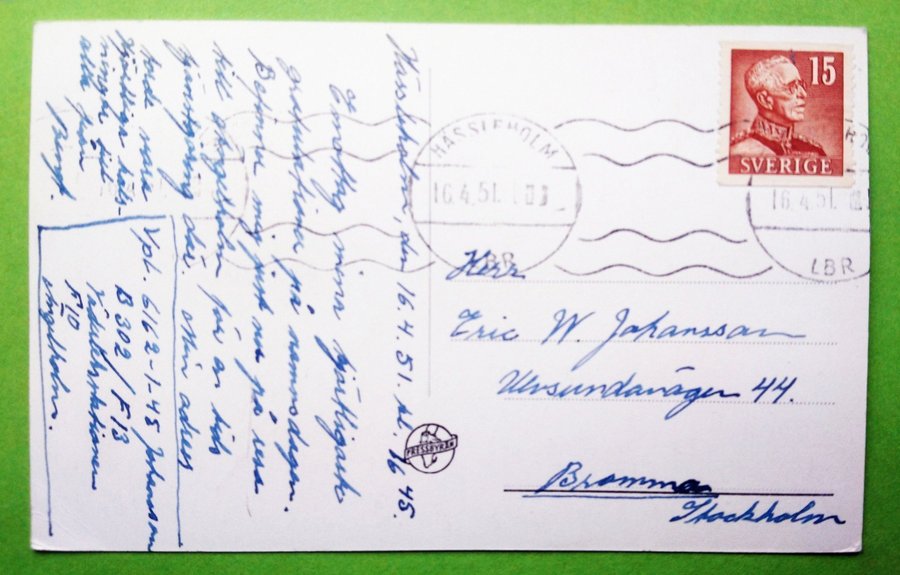 Hässleholm, den 16.4.51. kl. 16 45.
Emottag mina hjärtligaste
gratulationer på namnsdagen.
Befinner mig just nu på resa
till Ängelholm för en tids
tjänstgöring där. Min adress
torde vara
Hjärtliga häls-
ningar till
alla från
Bengt.
Vpl. 6162-1-45 Johansson
B 302/F13
Väderlekstjänsten
F10
Ängelholm.
15
SVERIGE
HÄSSLEHOLM
16.4.51.
LBR
16.4.51.
LBR
Herr
Eric W. Johansson
Ulvsundavägen 44.
Bromma
Stockholm
PRESSBYRÅN